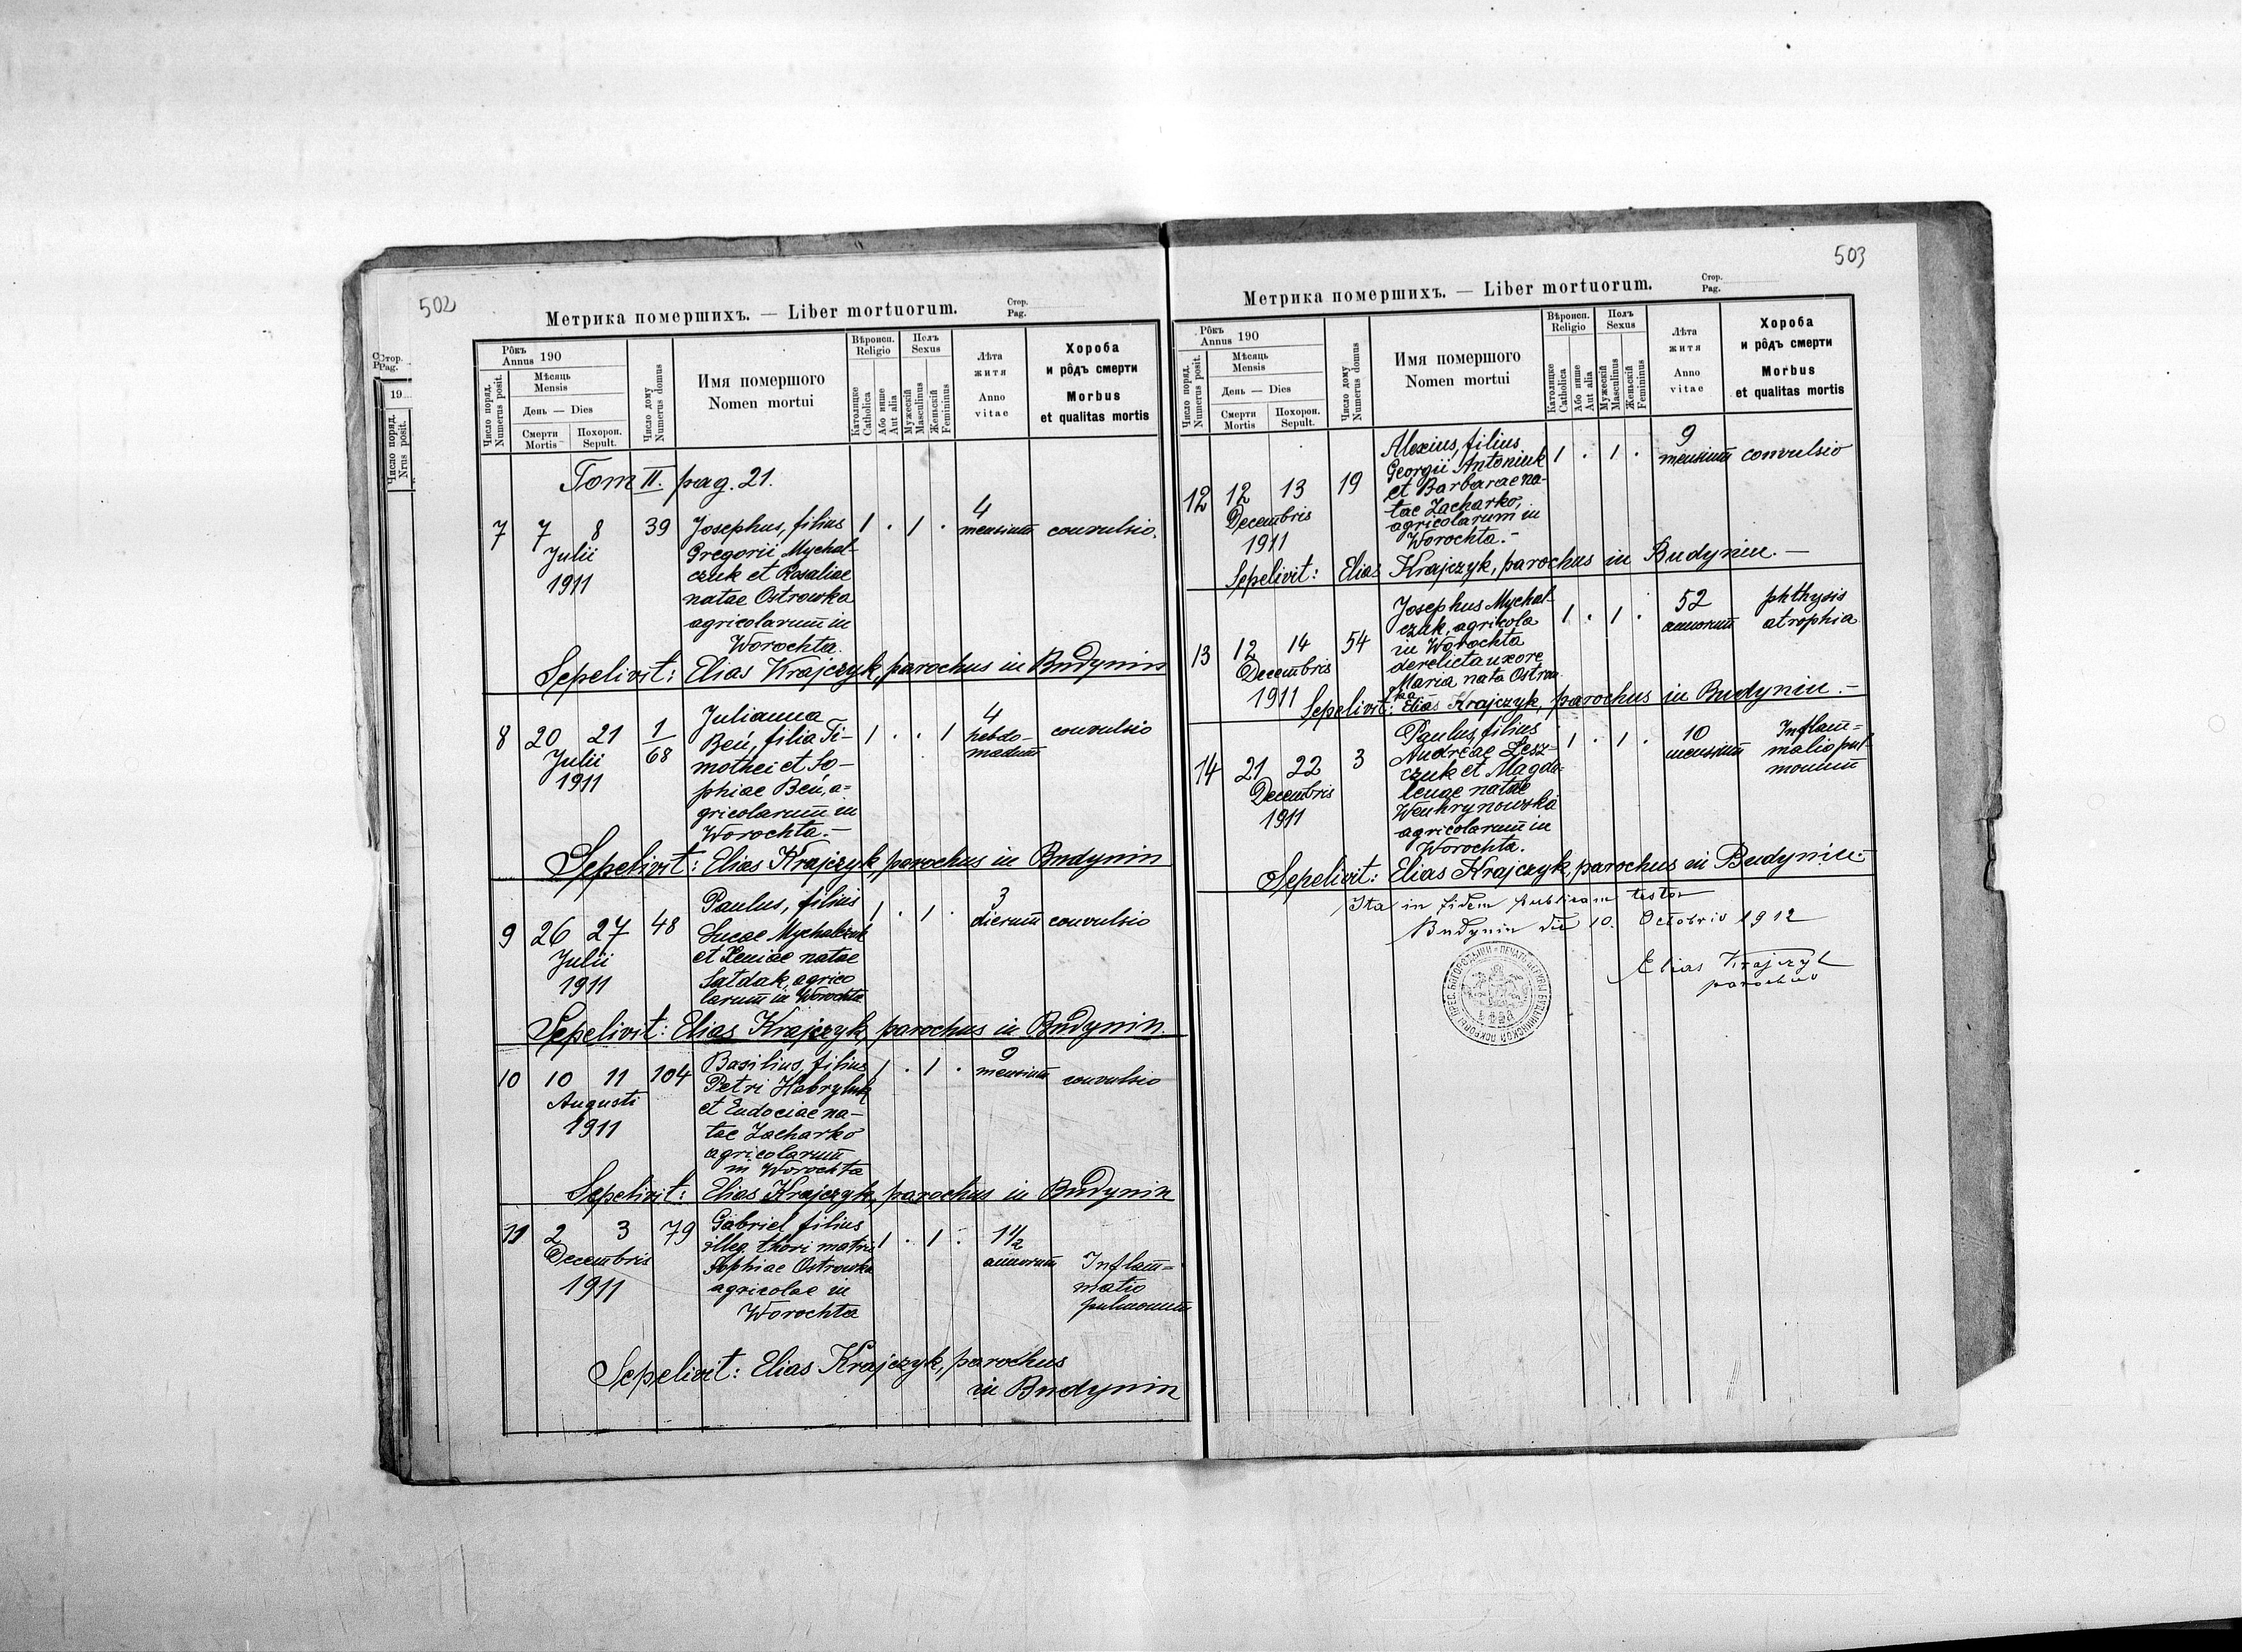 502
Метрика померших‌ъ. — Liber mortuorum.
Стор.
Pag.
Стор.
Pag.
19
Число поряд.
Nrus posit.
Рôкъ
Annus 190
Мѣсяць
Mensis
День — Dies
Смерти
Mortis
Похорон.
Sepult.
Число поряд.
Numerus posit.
Число дому
Numerus domus
Имя помершого
Nomen mortui
Вѣроисп.
Religio
Католицке
Catholica
Або инше
Aut alia
Полъ
Sexus
Мужескій
Masculinus
Женьскій
Femininus
Лѣта
житя
Anno
vitae
Хороба
и рôдъ смерти
Morbus
et qualitas mortis
Tom II. pag. 21.
7 7 8 39 Josephus, filius 1 . 1 . 4 mensium convulsio.
Julii Gregorii Mychal-
1911 czuk et Rosaliae
natae Ostrowka
agricolarum in
Worochta.
Sepelivit: Elias Krajczyk, parochus in Budynin
8 20 21 1/68 Julianna 1 . . 1 4 hebdo- convulsio
Julii Beń, filia Ti- madum
1911 mothei et So-
phiae Beń, a=
gricolarum in
Worochta.-
Sepelivit: Elias Krajczyk, parochus in Budynin
9 26 27 48 Paulus, filius 1 . 1 . 3 dierum convulsio
Julii Lucae Mychalczuk
1911 et Xeniae natae
Satdak, agrico
larum in Worochta
Sepelivit: Elias Krajczyk, parochus in Budynin.
10 10 11 104 Basilius, filius 1 . 1 . 9 mensium convulsio
Augusti Petri Habryluk
1911 et Eudociae na-
tae Zacharko
agricolarum
in Worochta
Sepelivit: Elias Krajczyk, parochus in Budynin
11 2 3 79 Gabriel filius 1 . 1 . 1 1/2 annorum
Decembris illeg. thori matris
1911 Sophiae Ostrowka Inflam=
agricolae in matio
Worochta pulmonum
Sepelivit: Elias Krajczyk, parochus
in Budynin
503
Метрика помершихъ. — Liber mortuorum.
Стор.
Pag.
Рôкъ
Annus 190
Мѣсяць
Mensis
День — Dies
Смерти
Mortis
Похорон.
Sepult.
Число поряд.
Numerus posit.
Число дому
Numerus domus
Имя помершого
Nomen mortui
Вѣроисп.
Religio
Католицке
Catholica
Або инше
Aut alia
Полъ
Sexus
Мужескій
Masculinus
Женьскій
Femininus
Лѣта
житя
Anno
vitae
Хороба
и рôдъ смерти
Morbus
et qualitas mortis
12 12 13 19 Alexius, filius 1 . 1 . 9 mensium convulsio
Decembris Georgii Antoniuk
1911 et Barbarae na-
tae Zacharko,
agricolarum in
Worochta.-
Sepelivit: Elias Krajczyk, parochus in Budynin.-
13 12 14 54 Josephus Mychal- 1 . 1 . 52 annorum phthysis
Decembris czuk, agricola atrophia
1911 in Worochta
derelicta uxore
Maria nata Ostrow
ka
Sepelivit: Elias Krajczyk, parochus in Budynin.-
14 21 22 3 Paulus, filius 1 . 1 . 10 mensium Inflam=
Decembris Andreae Lesz- matio pul-
1911 czuk et Magda- monum
lenae natae
Wenhrynowska
agricolarum in
Worochta.
Sepelivit: Elias Krajczyk, parochus in Budynin-
Ita in fidem publicam testor
Budynin die 10. Octobris 1912
Elias Krajczyk
parochus